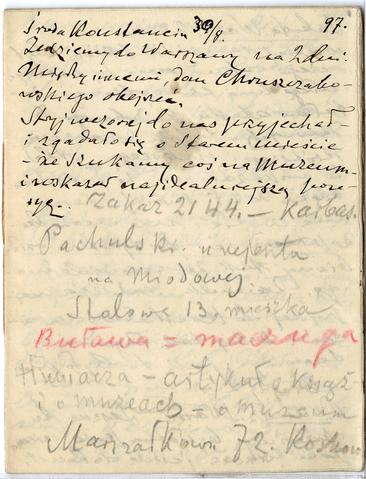 97.
Środa Konstancin 30/8.
Jedziemy do Warszawy na 2 dni.
Między innemi, dom Chruszczako-
wskiego obejrzeć.
Stryj wczoraj do nas przyjechał
i zgadało się o Starem mieście
- że szukamy coś na Muzeum -
i wskazał najidealniejszą pozy-
cyę.
Zakaz 2144. - Karbas.
Pachulski u rejenta
na Miodowej.
Stalowa 13, mieszka
Buława = maczuga
- artykuł o książ-
i o muzeach - o muzeum
Marszałkowska 72.